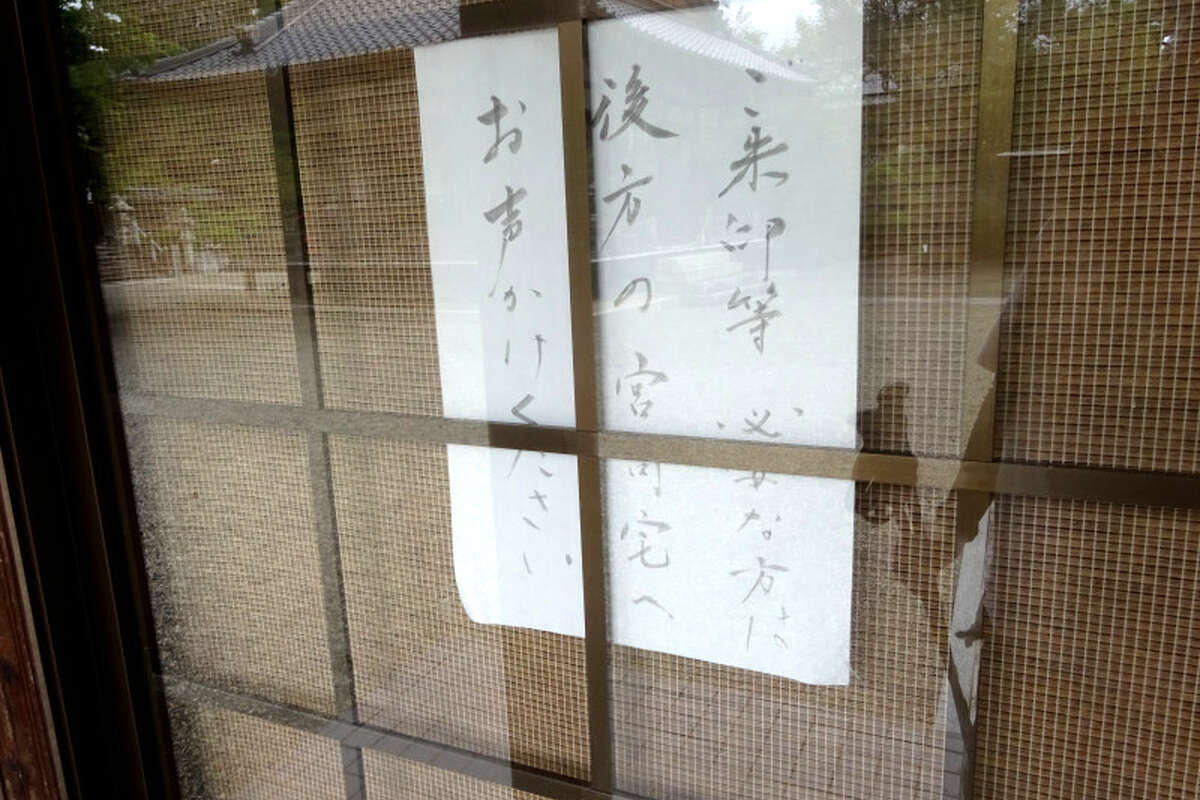 ご朱印等 必要な方は
後方の宮司宅へ
お声かけください